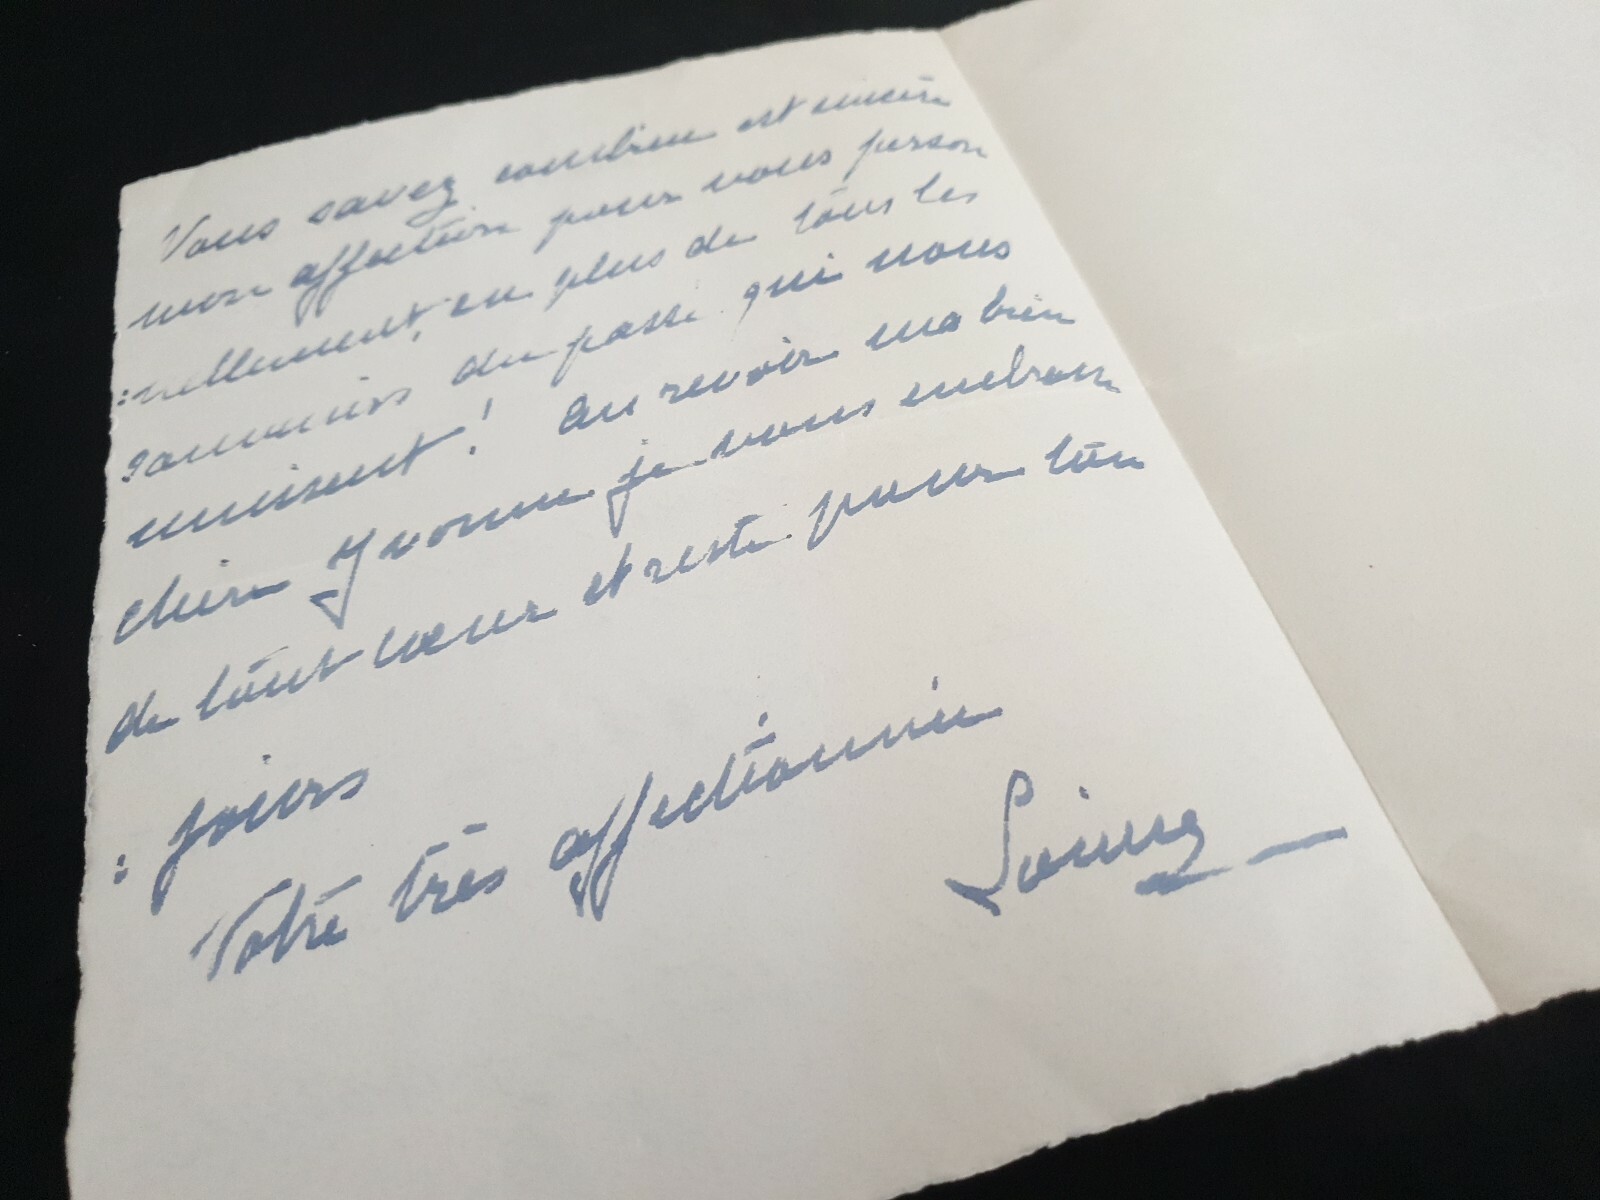 Vous savez combien est sincère
mon affection pour vous person
:nellement, en plus de tous les
souvenirs du passé qui nous
unissent! Au revoir ma bien
chère Yvonne je vous embrasse
de tout cœur et reste pour tou
:jours
Votre très affectionnée